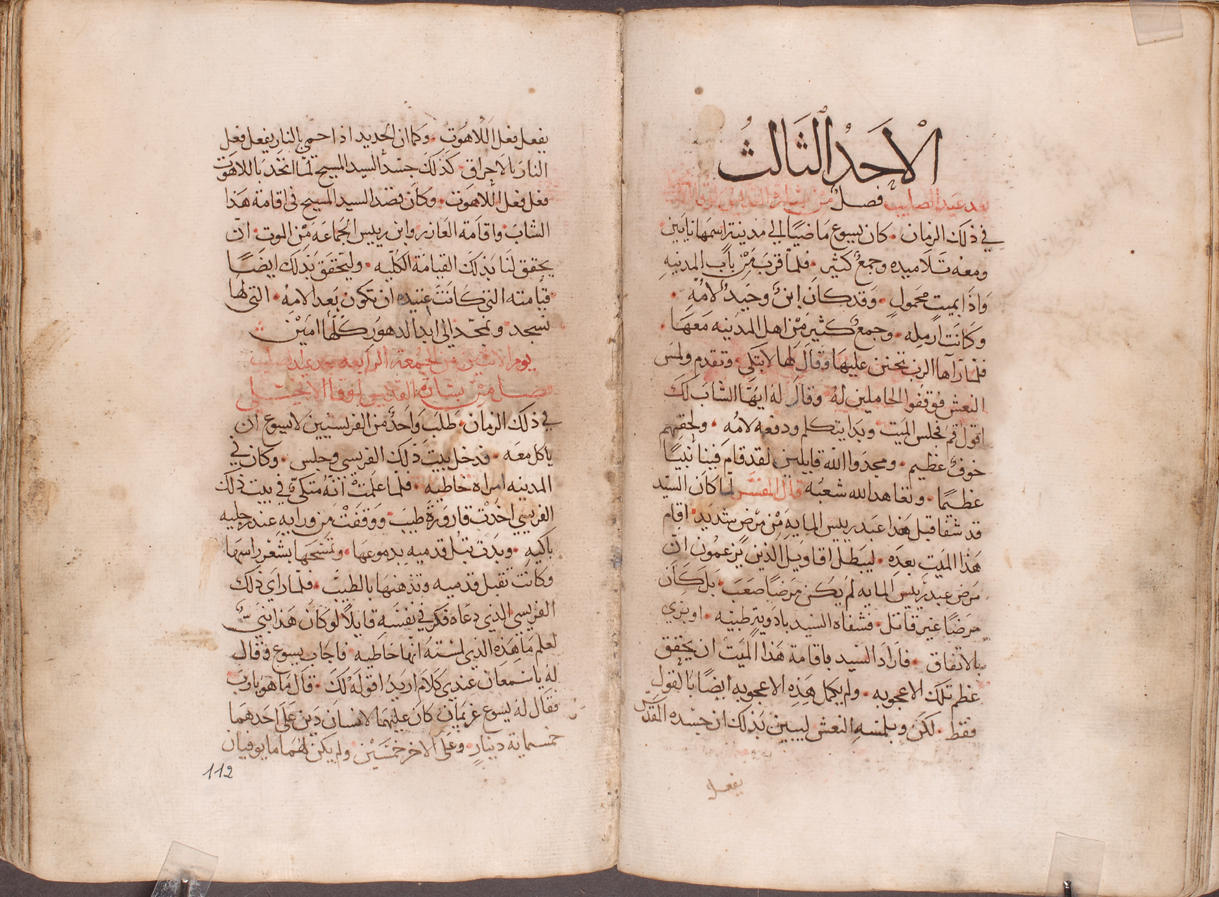 الاحد الثالث
بعد عيد الصليب فصل من بشارة القديس لوقا
في ذلك الزمان • كان يسوع ماضيًا الى مدينة اسمها نايين
ومعه تلاميده وجمع كثير • فلما قرب من باب المدينه
واذا بميت محمول • وقد كان ابنٌ وحيدٌ لامه •
وكانت ارمله • وجمع كثير من اهل المدينه معها •
فلما رآها الرب تحنن عليها وقال لها لا تبكي • وتقدم ولمس
النعش فوقفوا الحاملين له • وقال له ايها الشاب لك
اقول قم فجلس الميت • وبدا يتكلم ودفعه لامه • ولحقهم
خوف عظيم • ومجدوا الله قايلين لقد قام فينا نبيًا
عظيمًا • وتعاهد الله شعبه • قال المفسر لما كان السيد
قد شفا قبل هذا عبد رييس المايه من مرض شديد • اقام
هذا الميت بعده • ليبطل اقاويل الدين يزعمون ان
مرض عبد رييس المايه لم يكن مرضًا صعب • بل كان
مرضًا غير قاتل • فشفاه السيد بادوية طبيه • او بزي
بالاتفاق • فاراد السيد باقامة هذا الميت ان يحقق
عظم تلك الاعجوبه • ولم يكمل هذه الاعجوبه ايضًا بالقول
فقط • لكن وبلمسه النعش ليبين بذلك ان جسده المقدس
يفعل
يفعل فعل اللاهوت • وكما ان الحديد اذا احمي النار يفعل فعل
النار بالاحراق • كذلك جسد السيد المسيح لما اتحد باللاهوت
فعل فعل اللاهوت • وكان قصد السيد المسيح في اقامة هذا
الشاب واقامة العازر وابن رييس الجماعه من الموت • ان
يحقق لنا بذلك القيامة الكليه • وليحقق بذلك ايضًا
قيامته التي كانت عتيده ان تكون بعد الامه • التي لها
نسجد ونمجد الى ابد الدهور كلها امين
يوم الاثنين من الجمعة الرابعه بعد عيد الصليب
فصل من بشارة القديس لوقا الانجيلي
في ذلك الزمان • طلب واحد من الفريسيين لايسوع ان
ياكل معه • فدخل بيت ذلك الفريسي وجلس • وكان في
المدينه امراه خاطيه • فلما علمت انه متكي في بيت ذلك
الفريسي اخذت قارورة طيب • ووقفت من ورايه عند رجليه
باكيه • وبدت تبل قدميه بدموعها • وتمسحها بشعر راسها
وكانت تقبل قدميه وتدهنها بالطيب • فلما راى ذلك
الفريسي الذي دعاه فكر في نفسه قايلًا لو كان هذا نبيّ
لعلم ما هذه الذي لمسته انها خاطيه • فاجاب يسوع وقال
له يا سمعان عندي كلام اريد اقوله لك • قال ما هو يا رب
فقال له يسوع غريمان كان عليهما لانسان دين على احدهما
خمسماية دينار • وعلى الاخر خمسين • ولم يكن لهما ما يوفيان
112